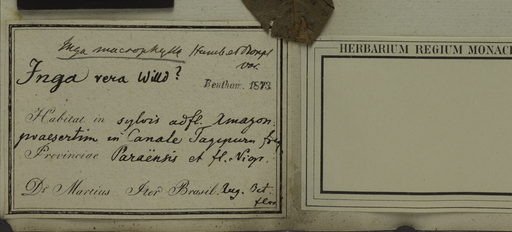 Inga macrophylla Humb et Bonpl
var.
Inga vera Willd?
Bentham. 1873
Habitat in sylvis adfl. Amazon.
praesertim in Canale Tagipuru
Provinciae Paraënsis et fl. Nigr.
Dr Martius Iter Brasil. Aug. Oct.
HERBARIUM REGIUM MONAC